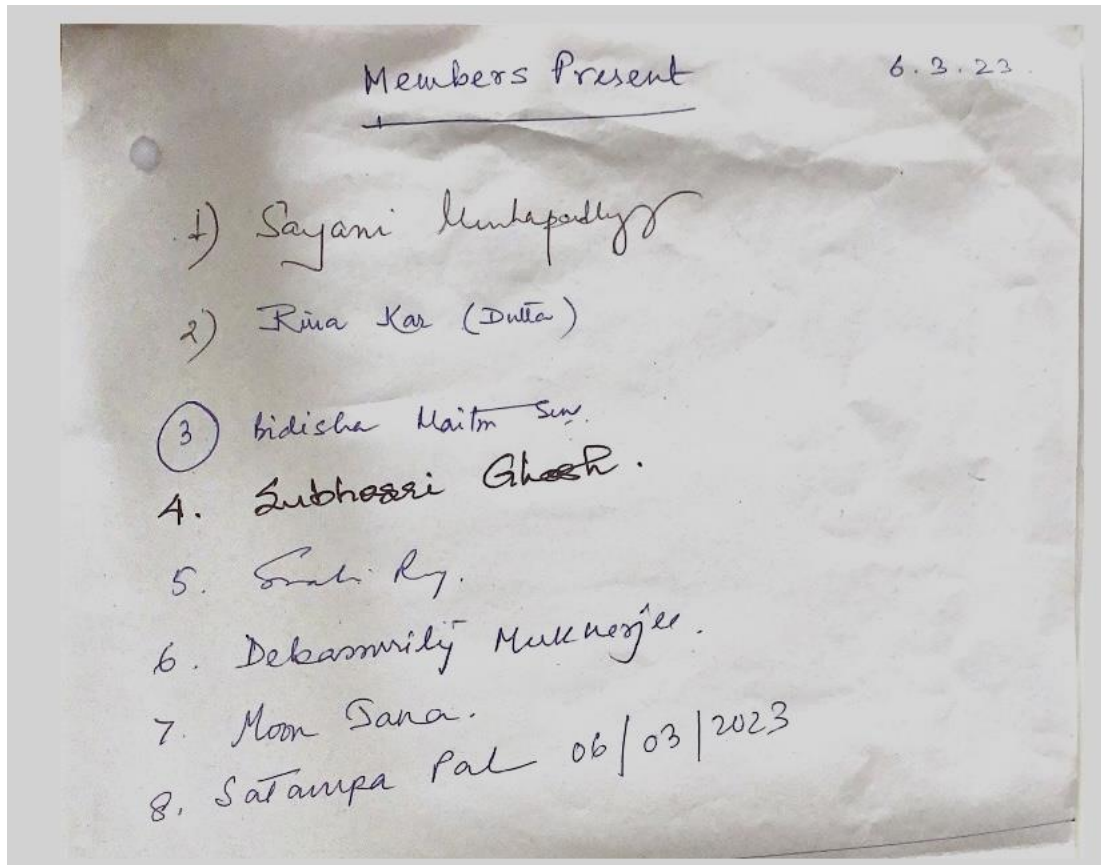 Members Present 6.3.23.
1) Sayani Mukhopadhyay
2) Rina Kar (Dutta)
3 Bidisha Maitra Sen.
4. Subhasri Ghosh.
5. Ry.
6. Mukherjee.
7. Moon Jana.
8. Satampa Pal 06/03/2023